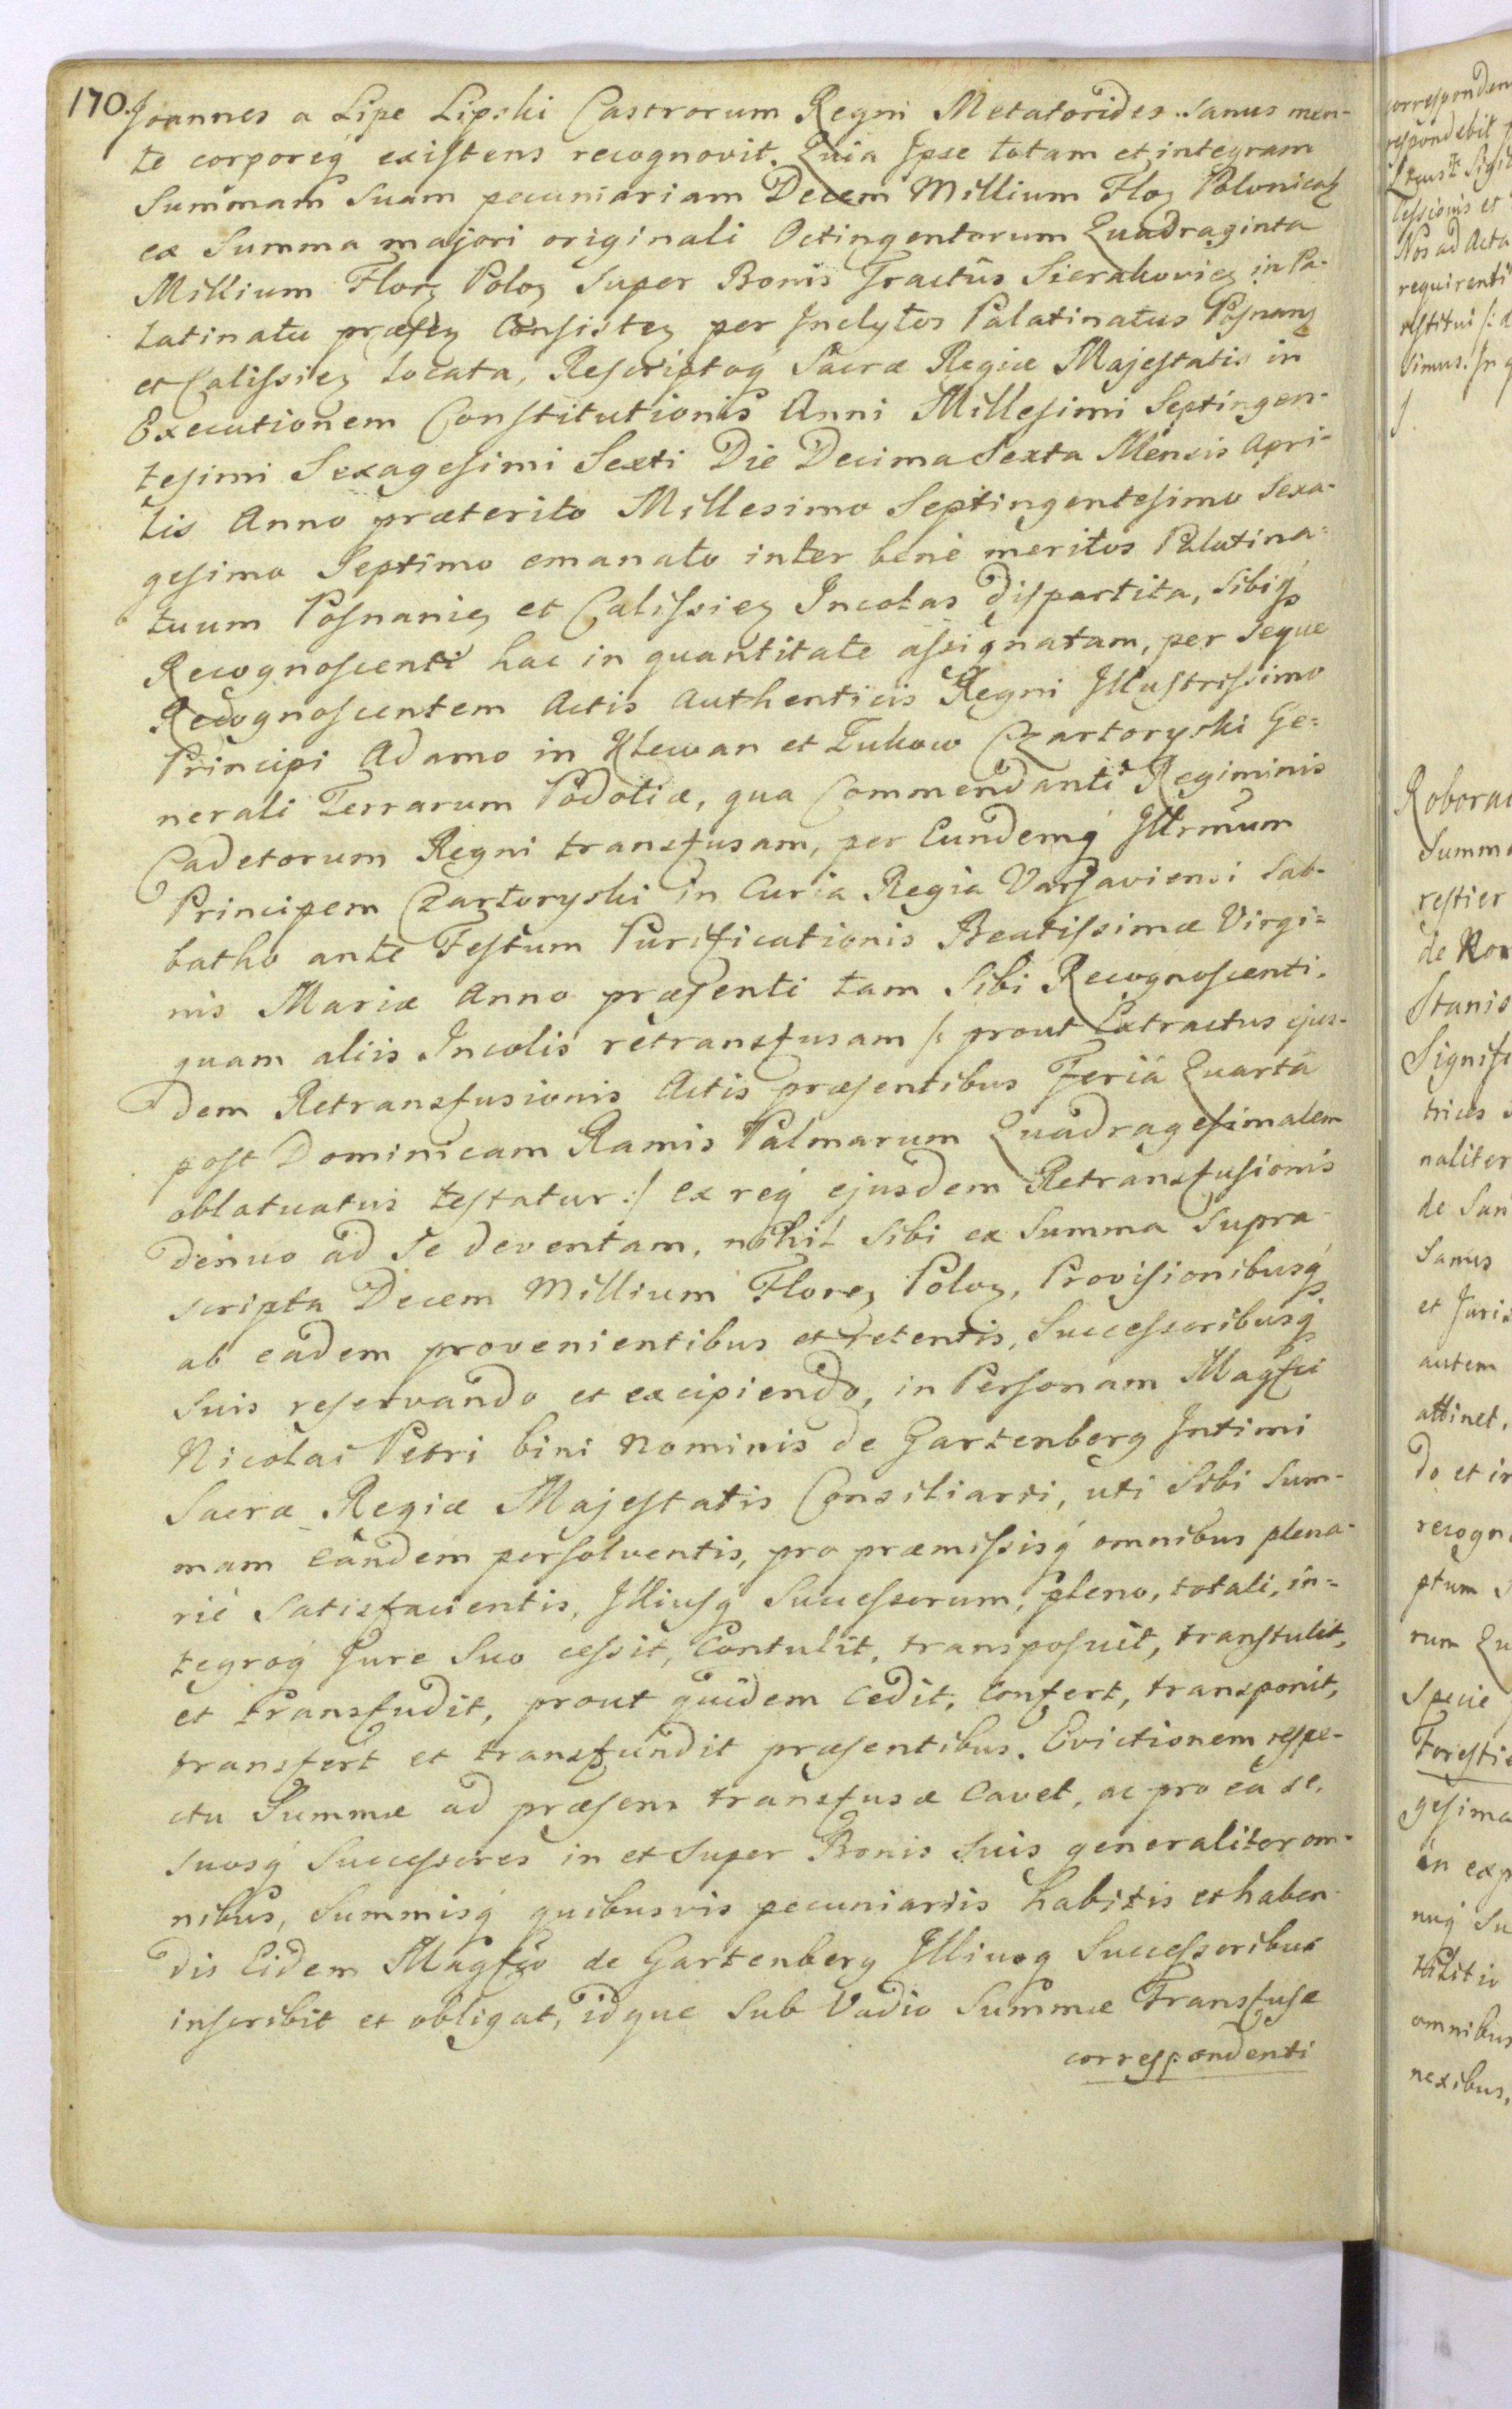 170. Joannes a Lipe Lipski Castrorum Regni Metatorides. Sanus men-
te corporeq́ existens recognovit. Quia Ipse totam et integram
Summam Suam pecuniariam Decem Millium Floꝫ Polonicalꝫ
ex Summa majori originali Octingentorum Quadraginta
Millium Florꝫ Poloꝫ Super Bonis Tractûs Sierakovieꝫ in Pa-
latinatu præſeꝫ Consisteꝫ per Inclytos Palatinatus Poſnanꝫ
et Caliſsieꝫ locata, Reſcriptoq́ Sacræ Regiæ Majeſtatis in
Executionem Conſtitutionis Anni Milleſimi Septingen-
teſimi Sexageſimi Sexti Die Decima Sexta Mensis Apri-
lis Anno præterito Millesimo Septingenteſimo Sexa-
geſimo Septimo emanato inter benè meritos Palatina-
tuum Poſnanieꝫ et Caliſsieꝫ Incolas diſpartita, Sibiq́
Recognoſcenti hac in quantitate aſsignatam, per Seque
Recognoſcentem Actis Authenticis Regni Illuſtriſsimo
Principi Adamo in Klewan et Zukow Czartoryski Ge-
nerali Terrarum Podoliæ, qua Commendanti Regiminis
Cadetorum Regni transfusam, per Eundemq́ Illrmũm
Principem Czartoryski in Curia Regia Varſaviensi Sab-
batho ante Feſtum Purificationis Beatiſsimæ Virgi-
nis Mariæ Anno præſenti tam Sibi Recognoſcenti.
quam aliis Incolis retransfusam /: prout Extractus ejus-
dem Retransfusionis Actis præſentibus Feriâ Quartâ
poſt Dominicam Ramis Palmarum Quadrageſimalem
oblatuatus teſtatur :/ ex req́ ejusdem Retransfuſionis
denuo ad Se deventam, nihil Sibi ex Summa Supra
scripta Decem Millium Floreꝫ Poloꝫ, Proviſionibusq́
ab eadem provenientibus et retentis, Succeſsoribusq́
Suis reſervando et excipiendo, in Perſonam Magfci
Nicolai Petri bini Nominis de Gartenberg Intimi
Sacræ Regiæ Majeſtatis Consiliarii, uti Sibi Sum-
mam eandem perſolventis, pro præmiſsisq́ omnibus plena-
riè Satisfacientis, Illiuſq́ Succeſsorum, pleno, totali, in-
tegroq́ Jure Suo ceſsit, Contulit, transpoſuit, tranſtulit,
et transfudit, prout quidem Cedit, Confert, transponit,
transfert et transfundit præſentibus. Evictionem reſpe-
ctu Summæ ad præſens transfusæ Cavet, ac pro ea se,
suosq́ Succeſsores in et Super Bonis Suis generaliter om-
nibus, Summisq́ quibusvis pecuniariis habitis et haben-
dis Eidem Magfco de Gartenberg Illiusq Succeſsoribus
inſcribit et obligat, idque Sub Vadio Summæ Transfuſæ
correſpondenti